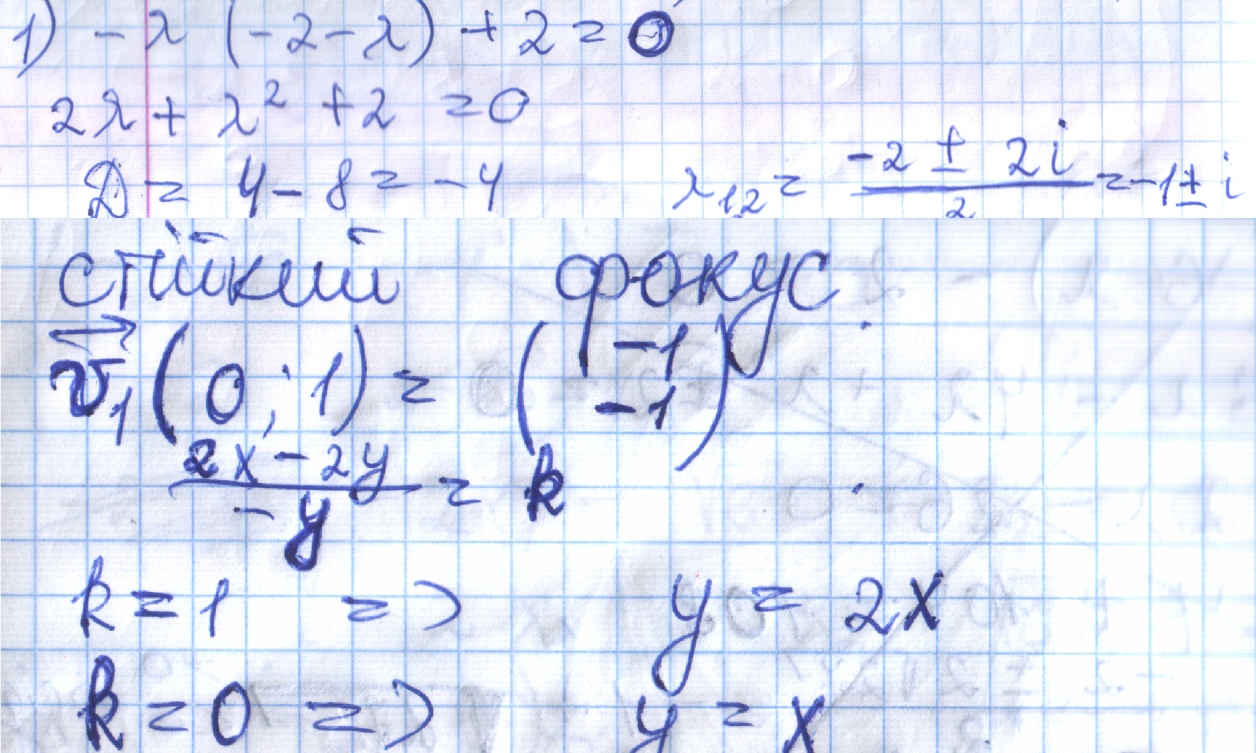 1) -λ (-2-λ) +2 = 0
2λ + λ² +2 = 0
Д = 4 - 8 = -4 λ₁,₂ = (-2 ± 2i)/2 = -1 ± i
стійкий фокус.
v⃗₁ (0; 1) = (-1 -1)
(2x - 2y)/(-y) = k
k = 1 => y = 2x
k = 0 => y = x